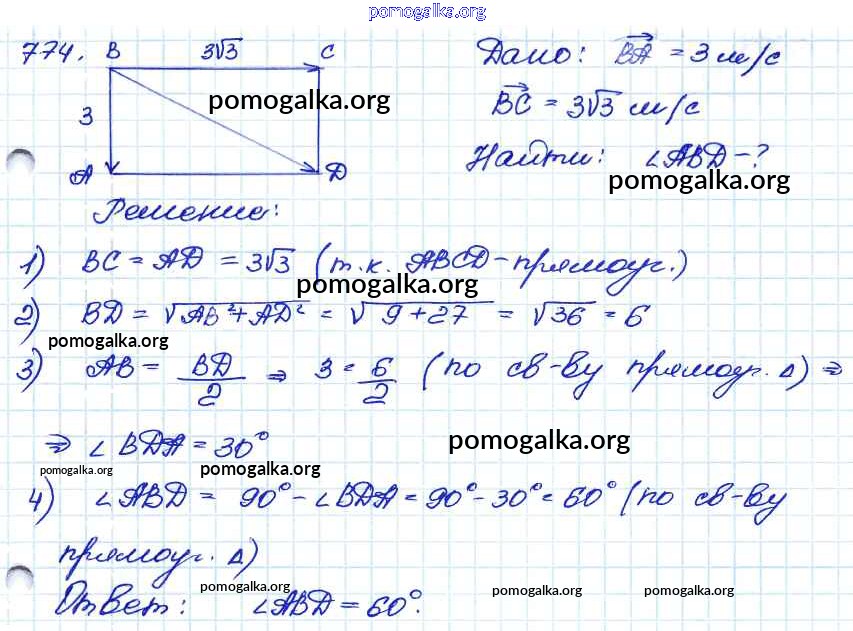 pomogalka.org
774. B 3√3 C
Дано: B͞A⃗ = 3 м/с
pomogalka.org
3
BC⃗ = 3√3 м/с
A D
Найти: ∠ABD - ?
pomogalka.org
Решение:
1) BC = AD = 3√3 (т.к. ABCD - прямоуг.)
pomogalka.org
2) BD = √AB²+AD² = √9+27 = √36 = 6
pomogalka.org
3) AB = BD/2 ⇒ 3 = 6/2 (по св-ву прямоуг. Δ) ⇒
⇒ ∠BDA = 30°
pomogalka.org
pomogalka.org pomogalka.org
4) ∠ABD = 90° - ∠BDA = 90° - 30° = 60° (по св-ву
прямоуг. Δ)
pomogalka.org pomogalka.org pomogalka.org
Ответ: ∠ABD = 60°.